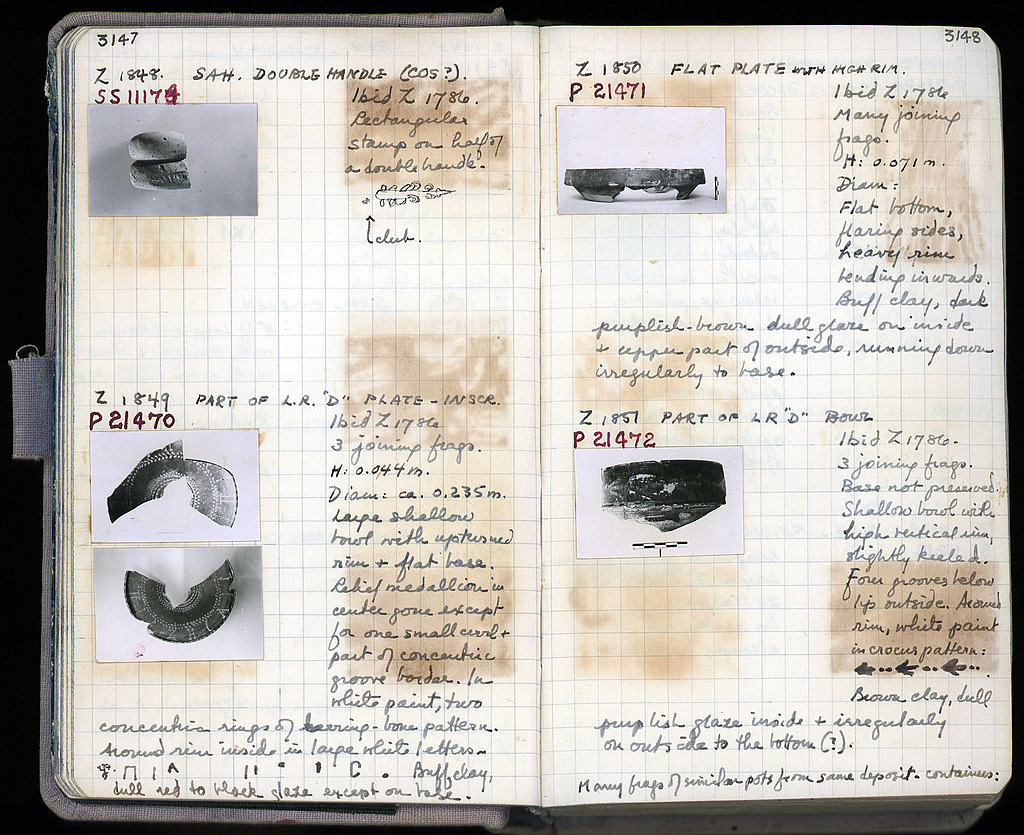 3147
Z 1848. SAH. DOUBLE HANDLE (COS?).
SS 11174
Ibid Z 1786.
Rectangular
stamp on half of
a double handle.
club.
Z 1849 PART OF L.R. "D" PLATE - INSCR.
P 21470
Ibid Z 1786
3 joining frags.
H: 0.044 m.
Diam: ca. 0.235 m.
Large shallow
bowl with upturned
rim + flat base.
Relief medallion in
center gone except
for one small curl +
part of concentric
groove border. In
white paint, two
concentric rings of herring-bone pattern.
Around rim inside in large white letters -
Buff clay,
dull red to black glaze except on base.
3148
Z 1850 FLAT PLATE WITH HIGH RIM.
P 21471
Ibid Z 1786
Many joining
frags.
H: 0.071 m.
Diam:
Flat bottom,
flaring sides,
heavy rim
bending inwards.
Buff clay, dark
purplish-brown dull glaze on inside
+ upper part of outside, running down
irregularly to base.
Z 1851 PART OF LR "D" BOWL
P 21472
Ibid Z 1786.
3 joining frags.
Base not preserved.
Shallow bowl with
high vertical rim,
slightly keeled.
Four grooves below
lip outside. Around
rim, white paint
in crocus pattern:
Brown clay, dull
purplish glaze inside + irregularly
on outside to the bottom (?).
Many frags of similar pots from same deposit - containers: